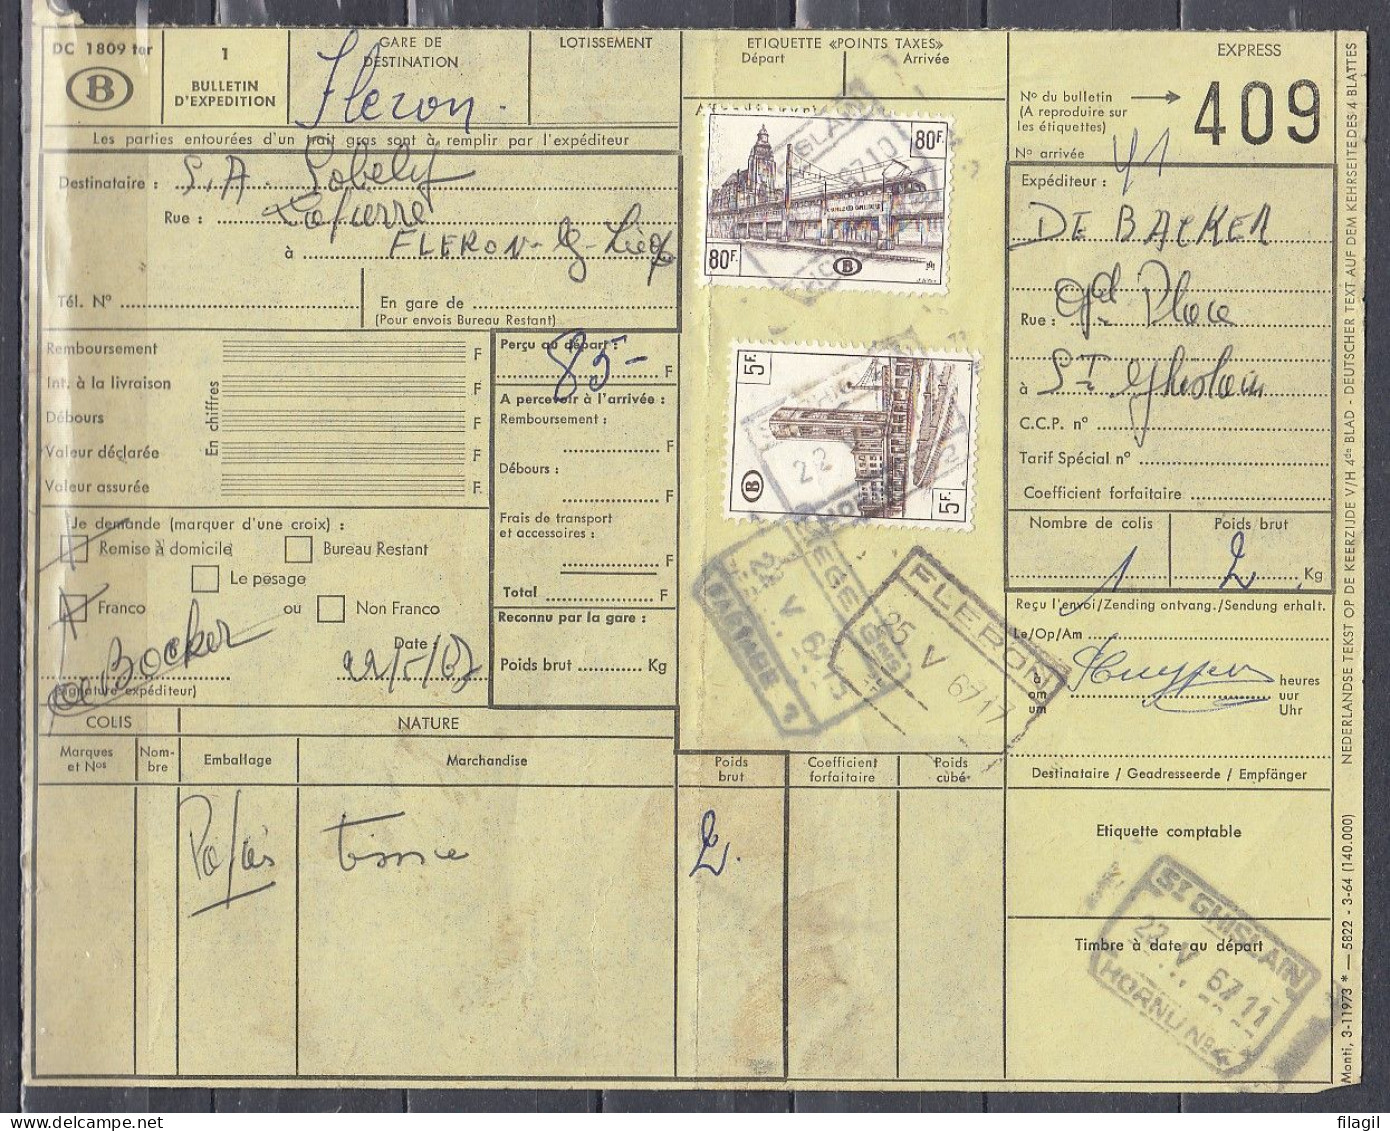 DC 1809 ter
B
1
BULLETIN
D'EXPEDITION
GARE DE
DESTINATION
Fleron.
LOTISSEMENT
ETIQUETTE «POINTS TAXES»
Départ
Arrivée
EXPRESS
Nº du bulletin
(A reproduire sur
les étiquettes)
409
Nº arrivée
41
Les parties entourées d'un trait gras sont à remplir par l'expéditeur
Destinataire : S.A.
Rue : Lapierre
à FLERON-lg-Liège
Tél. Nº
En gare de
(Pour envois Bureau Restant)
Expéditeur :
DE BACKER
Rue : Gde Place
à St Ghislain
C.C.P. nº
Tarif Spécial nº
Coefficient forfaitaire
Nombre de colis
Poids brut
1
2 Kg
80F.
80F.
B
5F.
5F.
B
Remboursement F
Int. à la livraison F
Débours F
Valeur déclarée F
Valeur assurée F
En chiffres
Perçu au départ :
85- F
A percevoir à l'arrivée :
Remboursement :
F
Débours :
F
Frais de transport
et accessoires :
F
Total F
Reconnu par la gare :
Poids brut Kg
Je demande (marquer d'une croix) :
Remise à domicile
Bureau Restant
Le pesage
Franco
ou
Non Franco
Date :
22/5/67
De Backer
(Signature expéditeur)
Reçu l'envoi/Zending ontvang./Sendung erhalt.
Le/Op/Am
à
om
um
heures
uur
Uhr
Destinataire / Geadresseerde / Empfänger
FLERON
25 V 67 17
LIEGE
22 V 67
ST GHISLAIN
COLIS
NATURE
Marques
et Nos
Nom-
bre
Emballage
Marchandise
Poids
brut
Coefficient
forfaitaire
Poids
cubé
2.
Etiquette comptable
Timbre à date au départ
ST GHISLAIN
22 V 67 11
HORNU Nº 4
NEDERLANDSE TEKST OP DE KEERZIJDE V/H 4de BLAD - DEUTSCHER TEXT AUF DEM KEHRSEITE DES 4 BLATTES
Monti, 3-11973 * — 5822 - 3-64 (140.000)
filagil